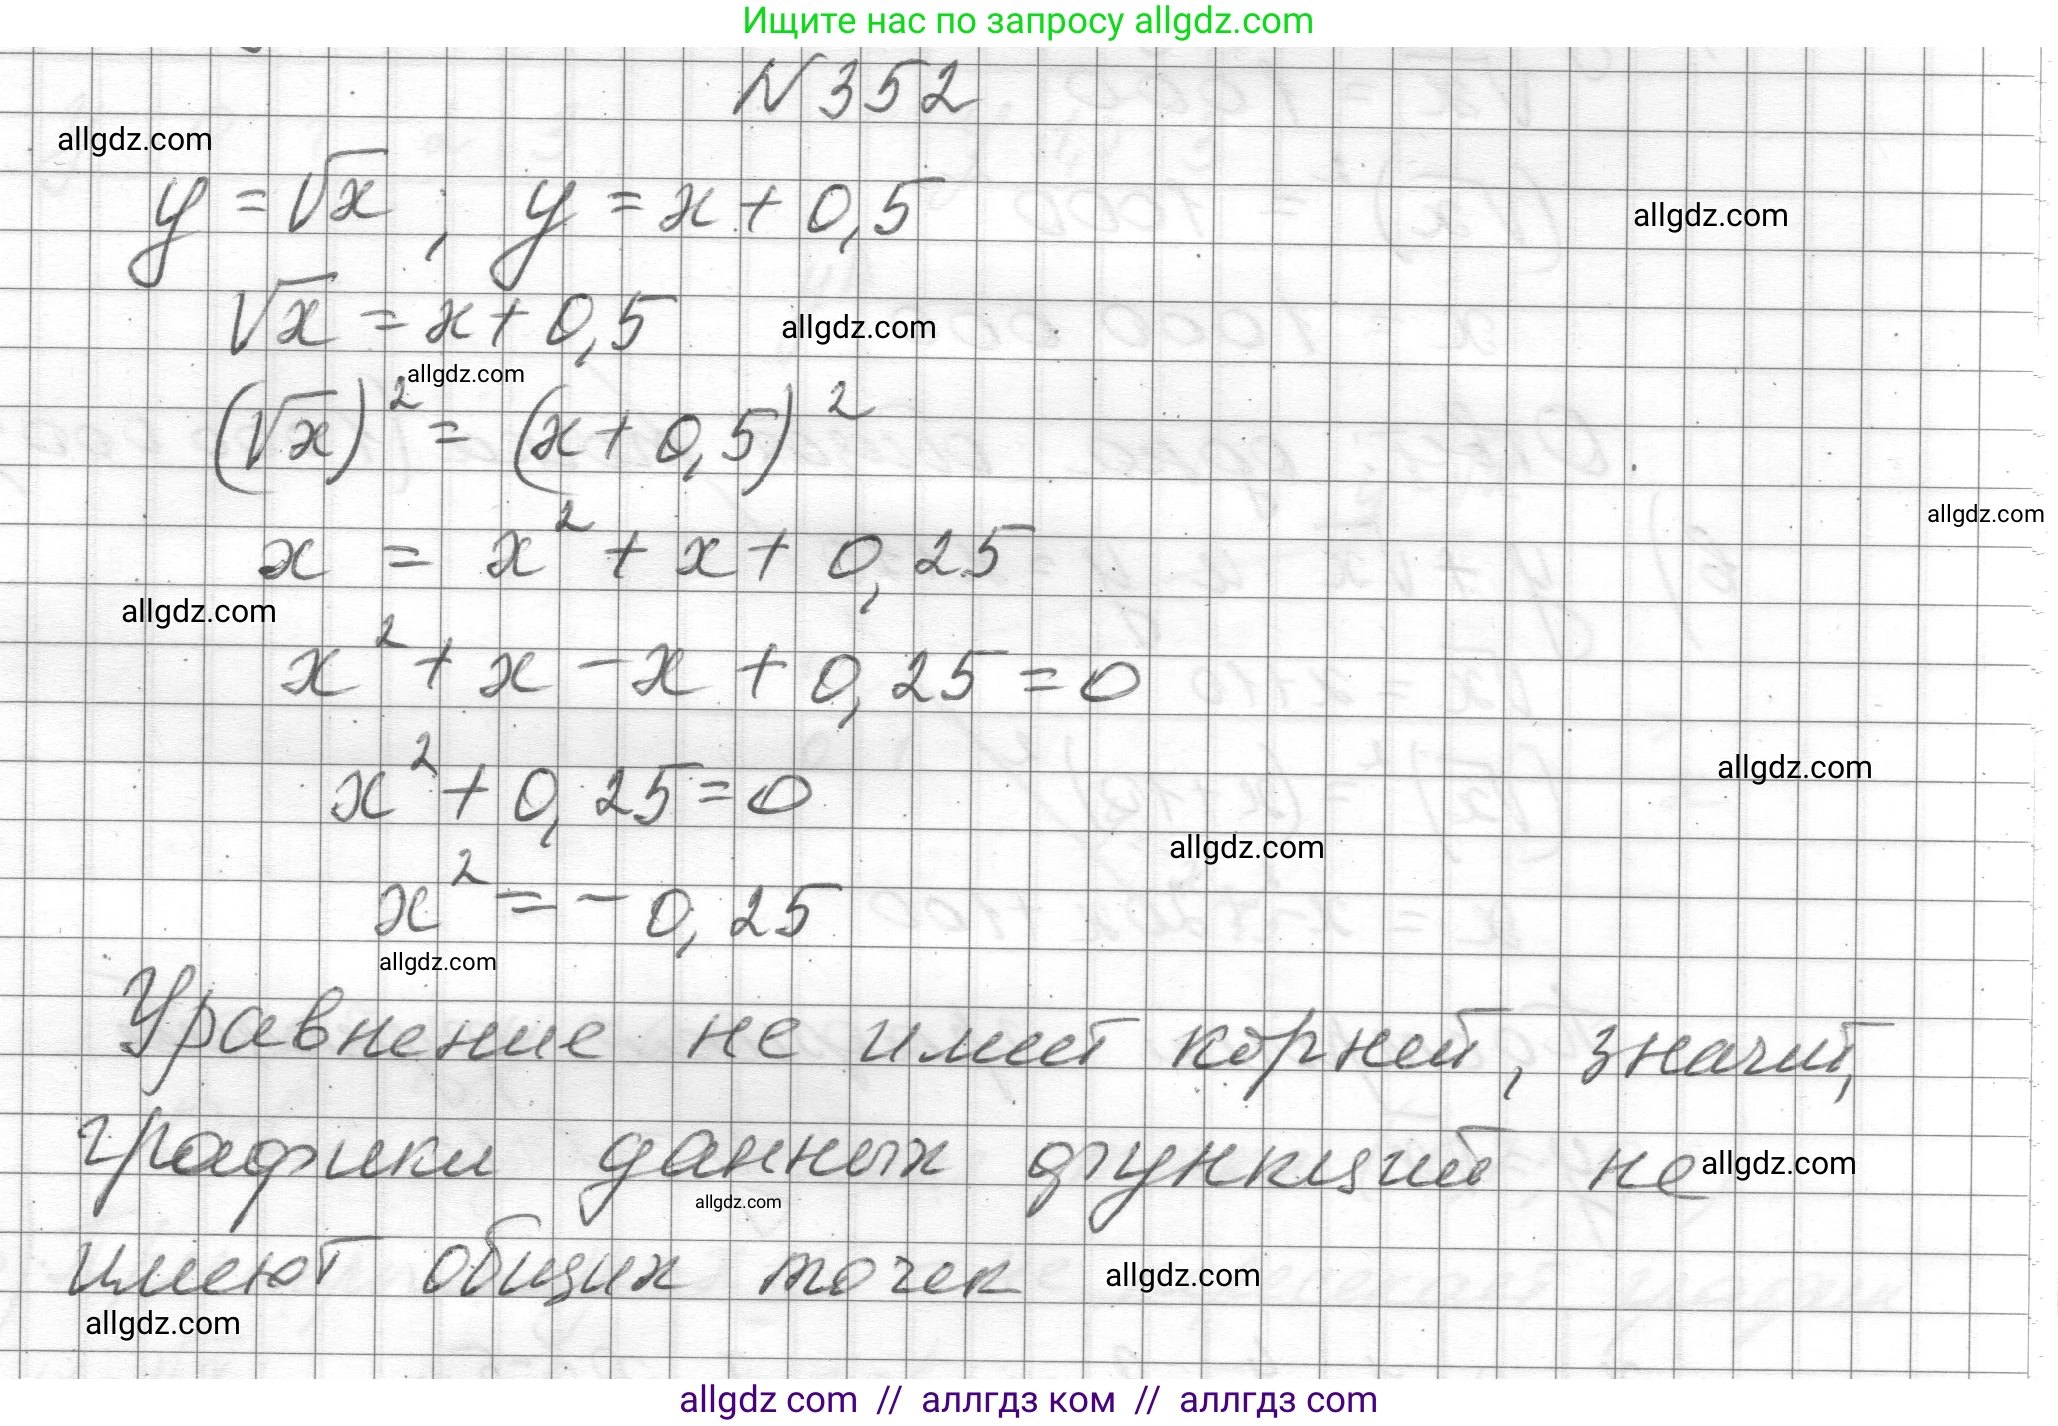 Ищите нас по запросу allgdz.com
N 352
allgdz.com
y = √x ; y = x + 0,5
allgdz.com
√x = x + 0,5
allgdz.com
allgdz.com
(√x)² = (x + 0,5)²
allgdz.com
x = x² + x + 0,25
allgdz.com
x² + x - x + 0,25 = 0
allgdz.com
x² + 0,25 = 0
allgdz.com
x² = - 0,25
allgdz.com
Уравнение не имеет корней, значит,
графики данных функций не
allgdz.com
allgdz.com
имеют общих точек
allgdz.com
allgdz.com
allgdz.com // аллгдз ком // аллгдз com